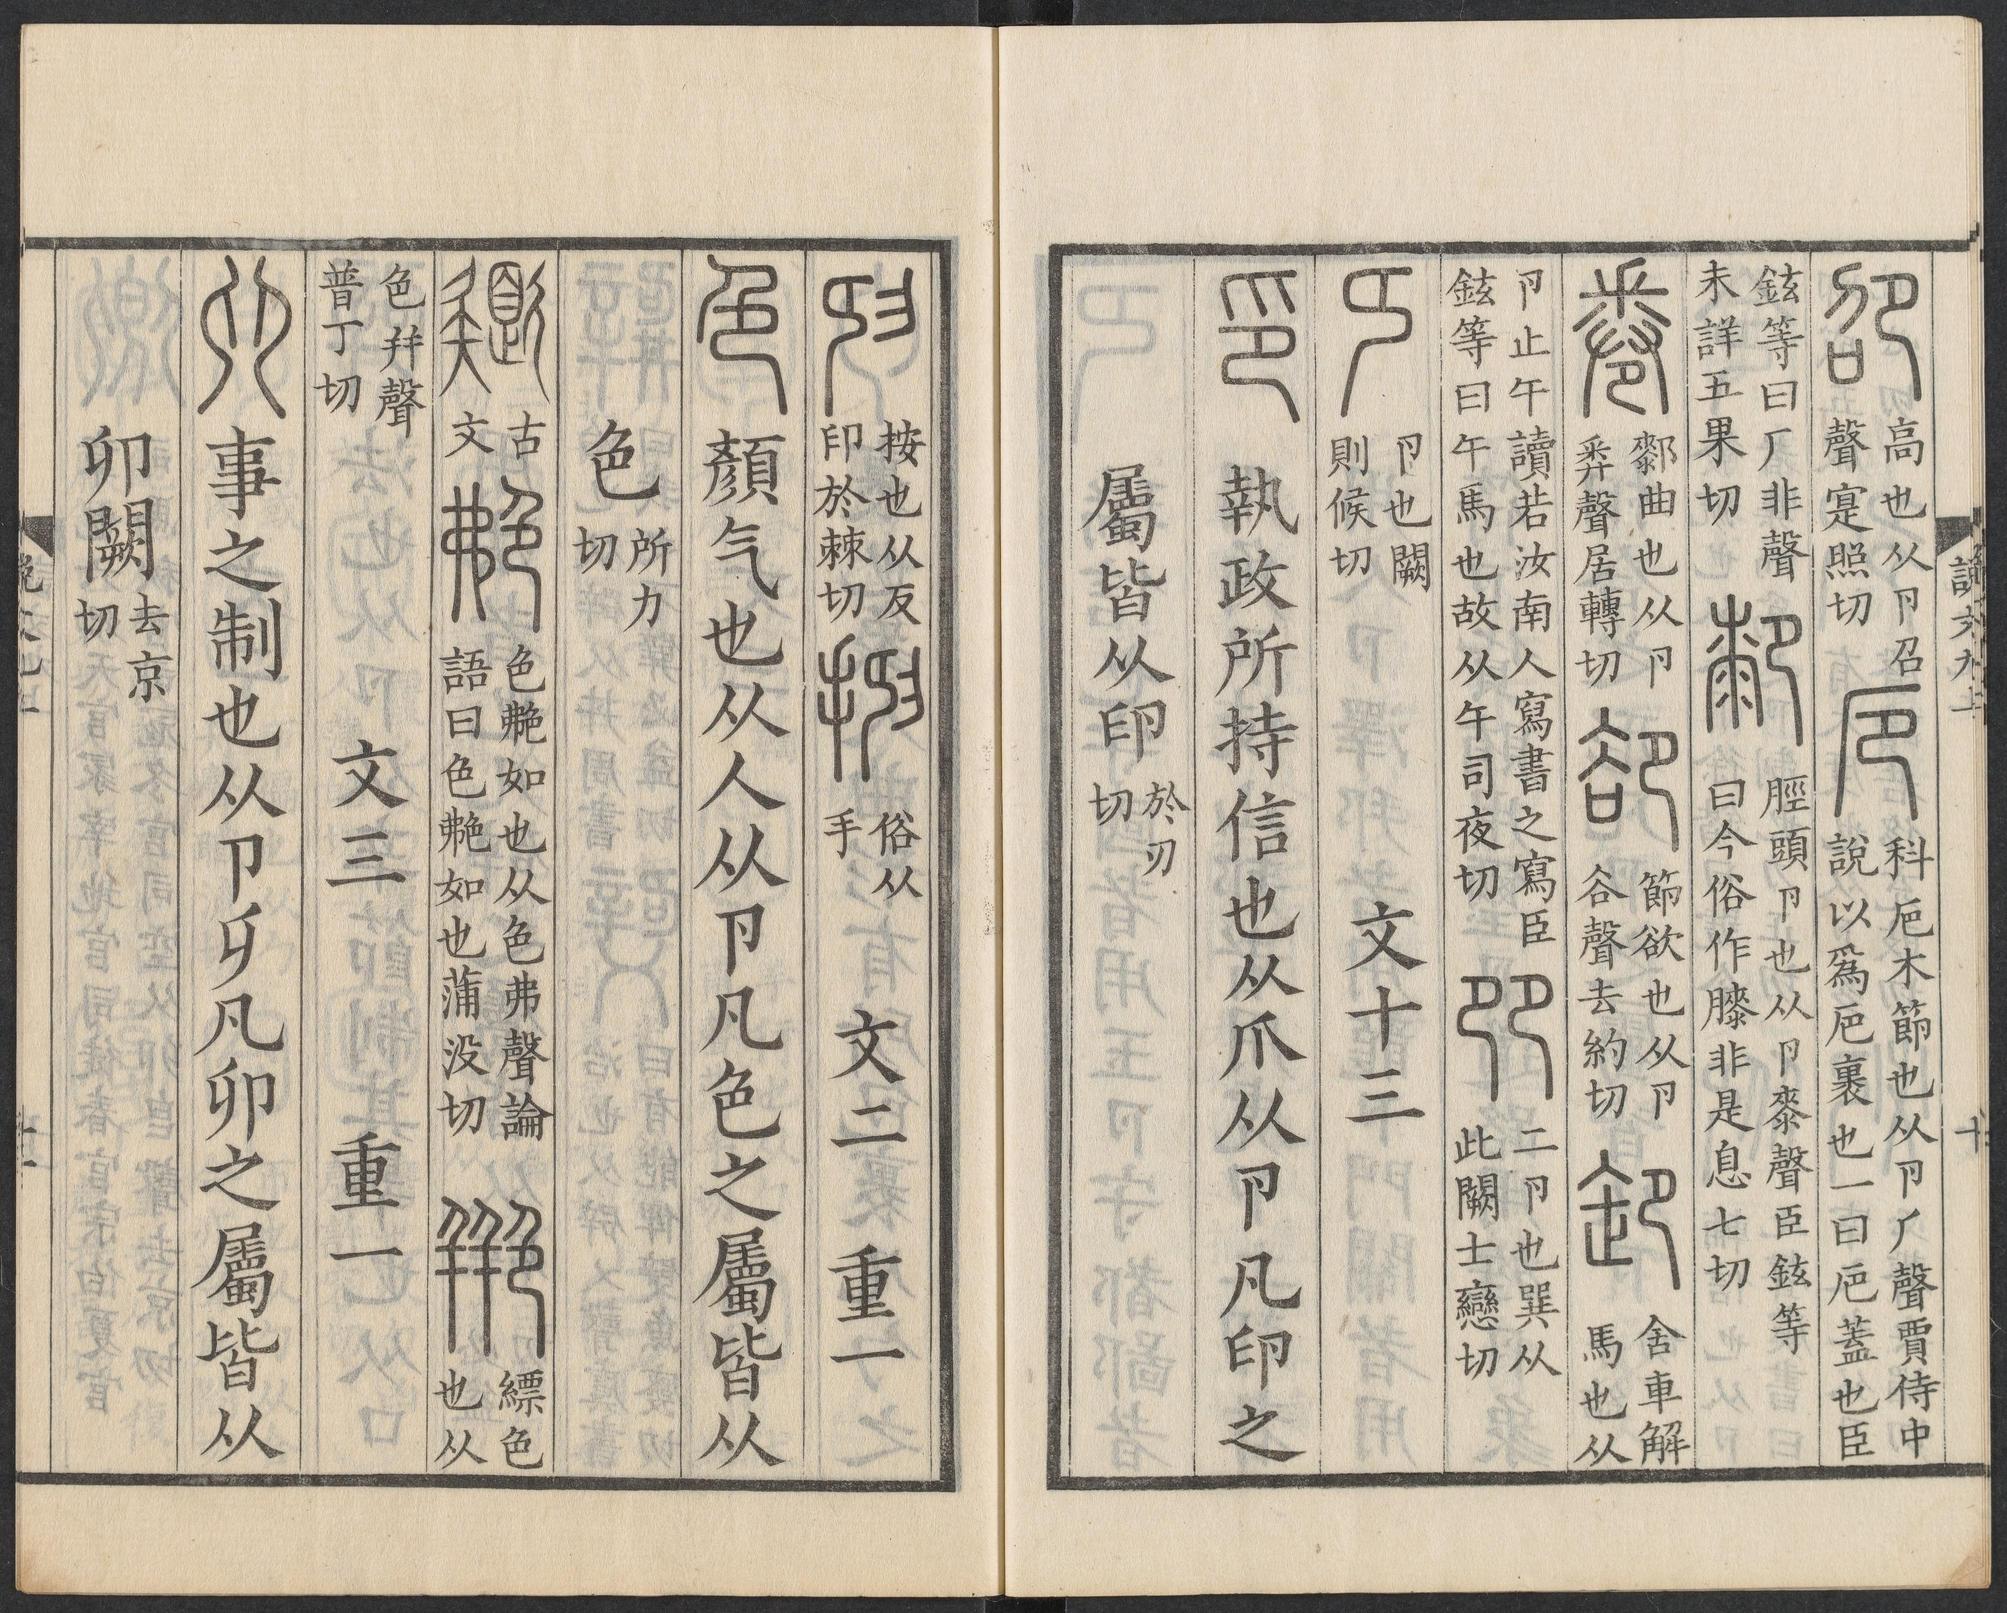 高也从卪召
聲寔照切
科厄木節也从卪厂聲賈侍中
說以爲厄裹也一曰厄蓋也臣
鉉等曰厂非聲
未詳五果切
脛頭卪也从卪桼聲臣鉉等
曰今俗作膝非是息七切
厀曲也从卪
𢍏聲居轉切
節欲也从卪
谷聲去約切
舍車解
馬也从
卪止午讀若汝南人寫書之寫臣
鉉等曰午馬也故从午司夜切
二卪也巽从
此闕士戀切
卪也闕
則候切
文十三
執政所持信也从爪从卪凡印之
屬皆从印
於刃
切
按也从反
印於棘切
俗从
手
文二
重一
顏气也从人从卪凡色之屬皆从
色
所力
切
古
文
色艴如也从色弗聲論
語曰色艴如也蒲没切
縹色
也从
色幷聲
普丁切
文三
重一
事之制也从卪𠨎凡卯之屬皆从
卯闕
去京
切
說文九上
十